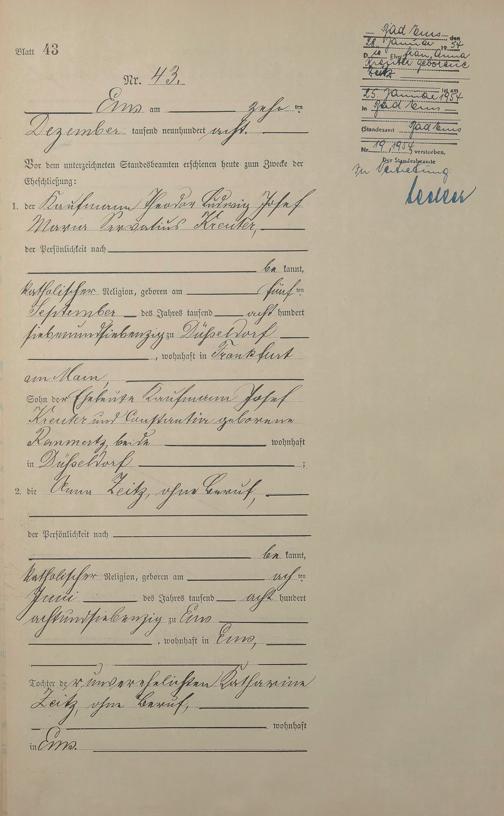 Blatt 43
Nr. 43.
Ems am zehnten
Dezember tausend neunhundert acht.
Vor dem unterzeichneten Standesbeamten erschienen heute zum Zwecke der
Eheschließung:
1. der Kaufmann Theodor Ludwig Josef
Maria Servatius Kreuter,
der Persönlichkeit nach
be kannt,
katholischer Religion, geboren am fünften
September des Jahres tausend acht hundert
siebenundsiebenzig zu Düsseldorf
, wohnhaft in Frankfurt
am Main,
Sohn der Eheleute Kaufmann Josef
Kreuter und Constantia geborene
beide wohnhaft
in Düsseldorf ;
2. die Anna Zeitz, ohne Beruf,
der Persönlichkeit nach
be kannt,
katholischer Religion, geboren am achten
Juni des Jahres tausend acht hundert
achtundsiebenzig zu Ems
, wohnhaft in Ems,
Tochter der unverehelichten Katharine
Zeitz, ohne Beruf,
wohnhaft
in Ems.
Bad Ems, den
28. Januar 1954
Die Ehefrau, Anna
Kreuter geborene
Zeitz
ist am
25. Januar 1954
in Bad Ems
(Standesamt Bad Ems
Nr. 19/1954) verstorben.
Der Standesbeamte
In Vertretung